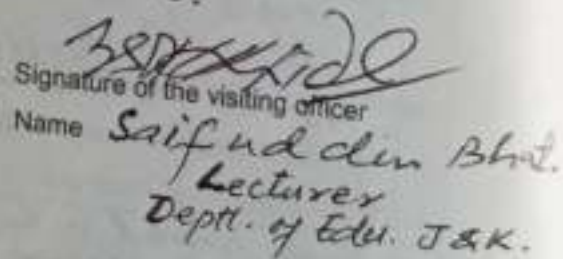 Signature of the visiting officer
Name Saifuddin Bhat.
Lecturer
Deptt. of Edu. J&K.